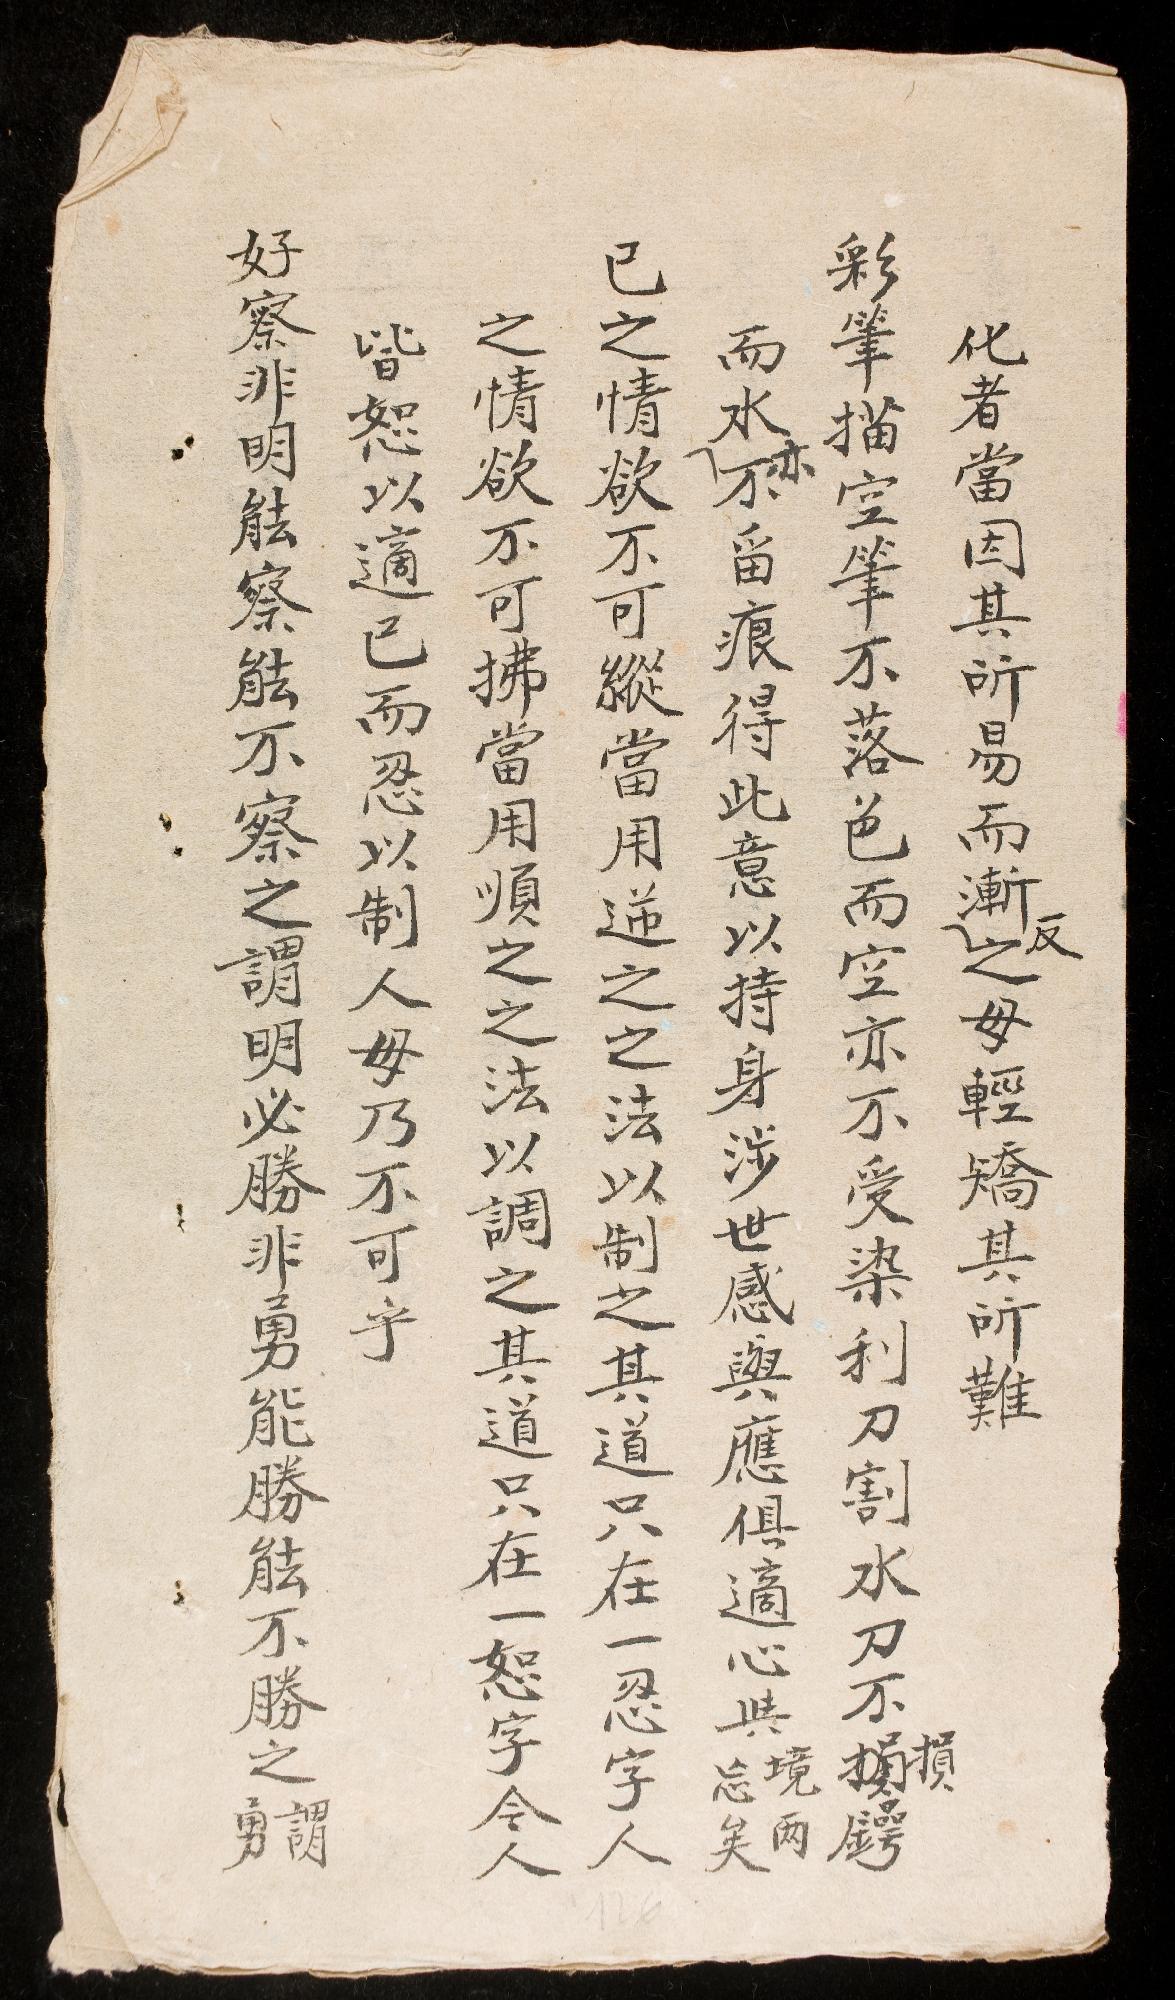 化者當因其所易而漸反之毋輕矯其所難
彩筆描空筆不落色而空亦不受染利刀割水刀不損損鍔
而水亦不留痕得此意以持身涉世感與應俱適心與境兩忘矣
已之情欲不可縱當用逆之之法以制之其道只在一忍字人
之情欲不可拂當用順之之法以調之其道只在一恕字令人
皆恕以適已而忍以制人毋乃不可乎
好察非明能察能不察之謂明必勝非勇能勝能不勝之謂勇
126